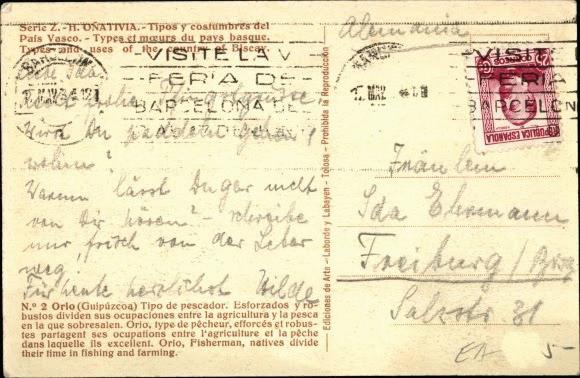 Serie Z.-H. OÑATIVIA.-Tipos y costumbres del
País Vasco.-Types et mœurs du pays basque.
Types and uses of the country of Biscay.
Liebe Ida!
Recht frohe
Wirst Du
wohin?
Warum lässt Du gar nicht
von Dir hören? - schreibe
nur frisch von der Leber
weg.
Für heute herzlichst Hilde
N.º 2 Orio (Guipúzcoa) Tipo de pescador. Esforzados y ro-
bustos dividen sus ocupaciones entre la agricultura y la pesca
en la que sobresalen. Orio, type de pêcheur, efforcés et robus-
tes partagent ses ocupations entre l'agriculture et la pêche
dans laquelle ils excellent. Orio, Fisherman, natives divide
their time in fishing and farming.
Ediciones de Arte - Laborde y Labayen - Tolosa - Prohibida la Reproducción
Alemania
BARCELONA
VISITE LA V
FERIA DE
BARCELONA DEL
VISITE
FERIA
BARCELON
MAY
CORREOS
25
REPUBLICA ESPAÑOLA
Fräulein
Ida Ehrmann
Freiburg / Brsg
Salzstr 31
EA 5-